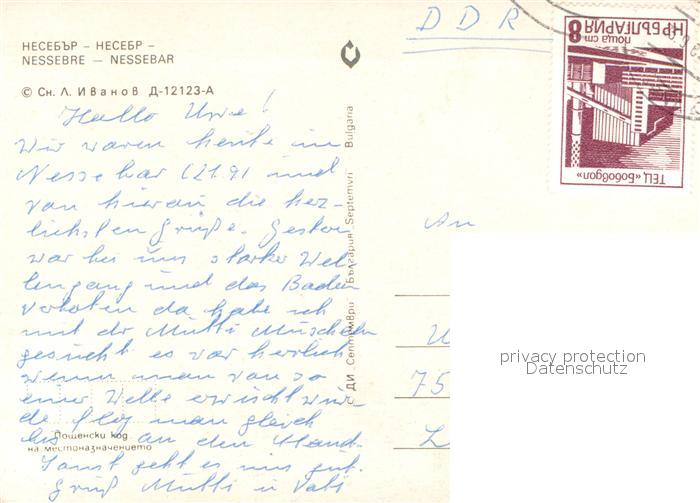 НЕСЕБЪР – НЕСЕБР –
NESSEBRE — NESSEBAR
© Сн. Л. Иванов Д-12123-А
Hallo Uwe!
Wir waren heute in
Nessebar (21.9) und
von hieraus die herz-
lichsten Grüße. Gestern
war bei uns starker Wel-
lengang und das Baden
verboten da habe ich
mit der Mutti Muscheln
gesucht es war herrlich
wenn man von so
einer Welle erwischt wur-
de flog man gleich
bis an den Strand.
Sonst geht es uns gut.
Gruß Mutti u Vati
Пощенски код
на местоназначението
© ДИ „Септември“ България „Septemvri“ Bulgaria
DDR
НР БЪЛГАРИЯ
поща ст. 8
ТЕЦ «Бобовдол»
An
U
75
L
privacy protection
Datenschutz